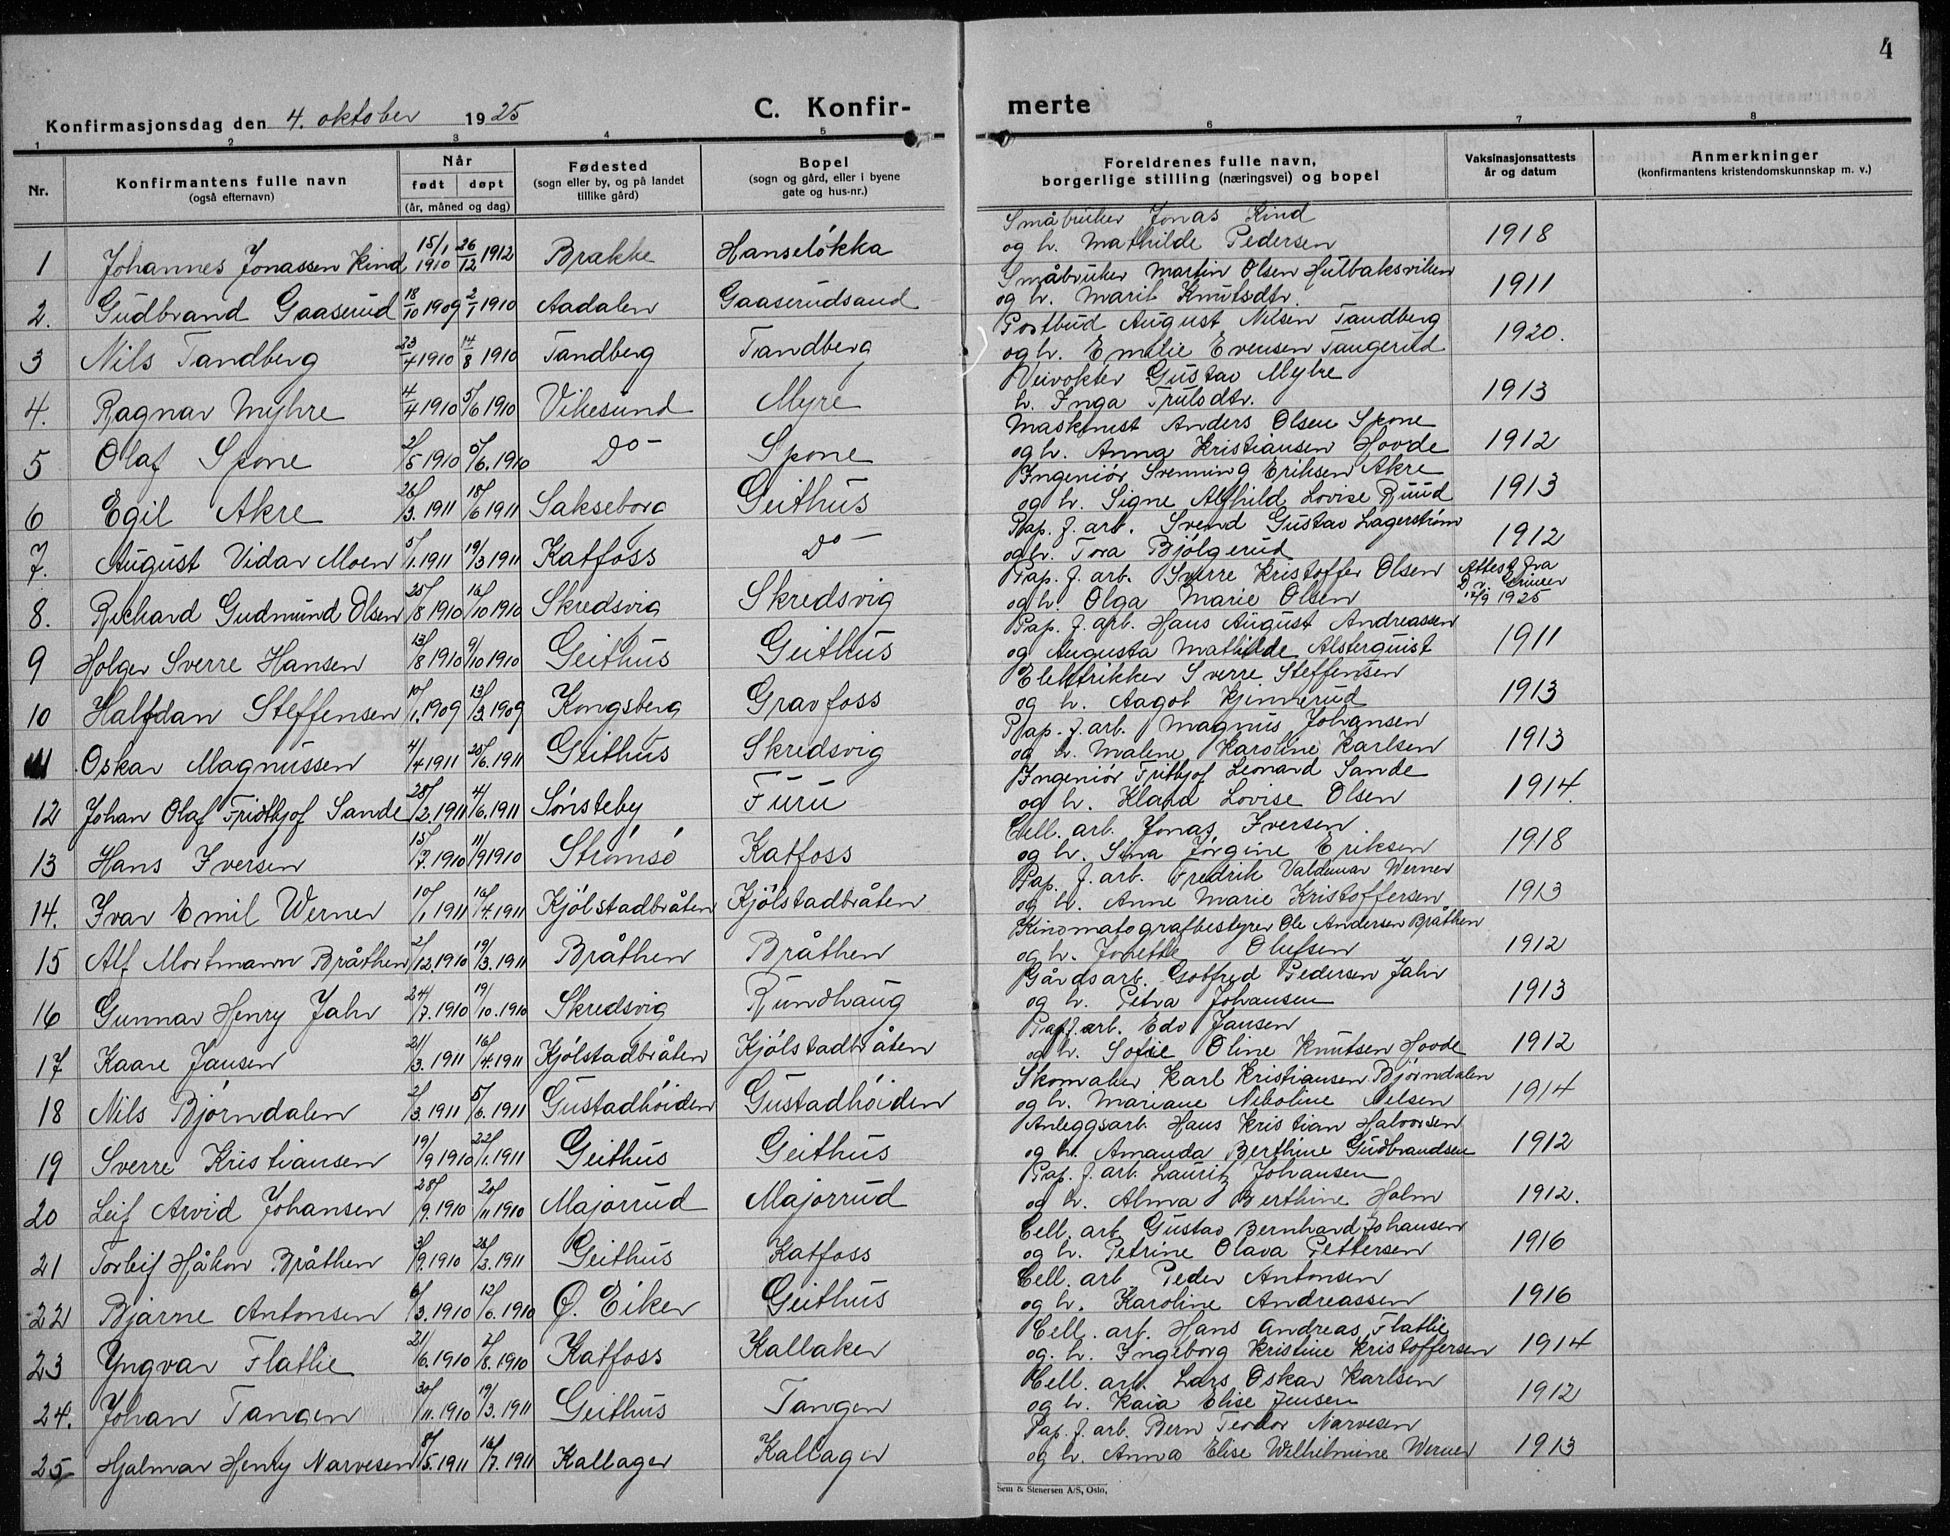 4
Konfirmasjonsdag den 4. oktober 1925
C. Konfir-
merte
1 2 3 4 5 6 7 8
Nr.
Konfirmantens fulle navn
(også efternavn)
Når
født døpt
(år, måned og dag)
Fødested
(sogn eller by, og på landet
tillike gård)
Bopel
(sogn og gård, eller i byene
gate og hus-nr.)
Foreldrenes fulle navn,
borgerlige stilling (næringsvei) og bopel
Vaksinasjonsattests
år og datum
Anmerkninger
(konfirmantens kristendomskunnskap m. v.)
Småbruker Jonas Kind
1 Johannes Jonassen Kind 15/1 1910 26/12 1912 Brakke Hanseløkka og h. Mathilde Pedersen 1918
Småbruker Martin Olsen Hulbaksviken
2. Gudbrand Gaaserud 18/10 1909 2/1 1910 Aadalen Gaaserudsand og h. Marit Knutsdtr. 1911
Postbud August Nilsen Tandberg
3 Nils Tandberg 23/4 1910 14/8 1910 Tandberg Tandberg og h. Emilie Evensen Tangerud 1920.
Veivokter Gustav Myhre
4. Ragnar Myhre 4/4 1910 5/6 1910 Vikesund Myre h. Inga Trulsdtr. 1913
Maskinist Anders Olsen Spone
5 Olaf Spone 2/5 1910 5/6. 1910 Do - Spone og h. Anna Kristiansen Hovde 1912
Ingeniør Svenning Eriksen Akre
6 Egil Akre 26/3. 1911 18/6 1911 Sakseborg Geithus og h. Signe Alfhild Lovise Ruud 1913
Pap. f. arb. Svend Gustav Lagerstrøm
7. August Vidar Moen 5/1. 1911 19/3 1911 Katfoss Do - og h. Tora Bjölgerud 1912
Pap. f. arb. Sverre Kristoffer Olsen Attest fra
8. Richard Gudmund Olsen 25/8 1910 16/10 1910 Skredsvig Skredsvig og h. Olga Marie Olsen 12/9 1925
Pap. f. arb. Hans August Andreassen
9 Holger Sverre Hansen 13/8 1910 9/10 1910 Geithus Geithus og Augusta Mathilde Alsterquist 1911
Elektrikker Sverre Steffensen
10 Halfdan Steffensen 10/1. 1909 13/3. 1909 Kongsberg Gravfoss og h. Aagot Kjennerud 1913
Pap. f. arb. Magnus Johansen
11 Oskar Magnussen 4/4 1911 25/6. 1911 Geithus Skredsvig og h. Malene Karoline Karlsen 1913
Ingeniør Fritjof Leonard Sande
12 Johan Olaf Fridtjof Sande 28/2. 1911 4/6. 1911 Sønsteby Furu og h. Klara Lovise Olsen 1914.
Cell. arb. Jonas Iversen
13 Hans Iversen 15/7. 1910 11/9 1910 Strømsö Katfoss og h. Sina Jörgine Eriksen 1918
Pap. f. arb. Fredrik Valdemar Werner
14. Ivar Emil Werner 10/1 1911 16/4. 1911 Kjölstadbråten Kjölstadbråten og h. Anne Marie Kristoffersen 1913
Kinomatografbestyrer Ole Andersen Bråthen
15 Alf Mortmann Bråthen 2/12. 1910 19/3. 1911 Bråthen Bråthen og h. Jonette Olufsen 1912
Gårdsarb. Gotfred Pedersen Jahr
16 Gunnar Henry Jahr 24/7. 1910 19/10. 1910 Skredsvig Rundhaug og h. Petra Johansen 1913
Pap. f. arb. Edv Jansen
17 Kaare Jansen 21/3. 1911 16/4. 1911 Kjölstadbråten Kjölstadbråten og h. Sofie Oline Knutsen Hovde 1912
Skomaker Karl Kristiansen Björndalen
18 Nils Björndalen 2/3. 1911 5/6. 1911 Gustadhöiden Gustadhöiden og h. Mariane Nikoline Nilsen 1914
Anleggsarb. Hans Kristian Halvorsen
19 Sverre Kristiansen 19/9 1910 22/1. 1911 Geithus Geithus og h. Amanda Berthine Gudbrandsen 1912
Pap. f. arb. Laurits Johansen
20 Leif Arvid Johansen 28/9. 1910 20/11 1910 Majorrud Majorrud og h. Alma Berthine Holm 1912.
Cell. arb. Gustav Bernhard Johansen
21 Torleif Håkon Bråthen 3/9. 1910 26/3. 1911 Geithus Katfoss og h. Petrine Olava Pettersen 1916
Cell. arb Peder Antonsen
22 Bjarne Antonsen 6/3. 1910 12/6. 1910 Ø. Eiker Geithus og h. Karoline Andreassen 1916
Cell. arb. Hans Andreas Flatlie
23 Yngvar Flatlie 21/6. 1910 2/8. 1910 Katfoss Kallaker og. h. Ingeborg Kristine Kristoffersen 1914
Cell. arb. Lars Oskar Karlsen
24. Johan Tangen 30/11. 1910 19/3. 1911 Geithus Tangen og h. Kaia Elise Jensen 1912
Pap. f. arb. Bern Teodor Narvesen
25 Hjalmar Henry Narvesen 8/5. 1911 16/7. 1911 Kallager Kallager og h. Anna Elise Wilhelmine Werner 1913
Sem & Stenersen A/S, Oslo,